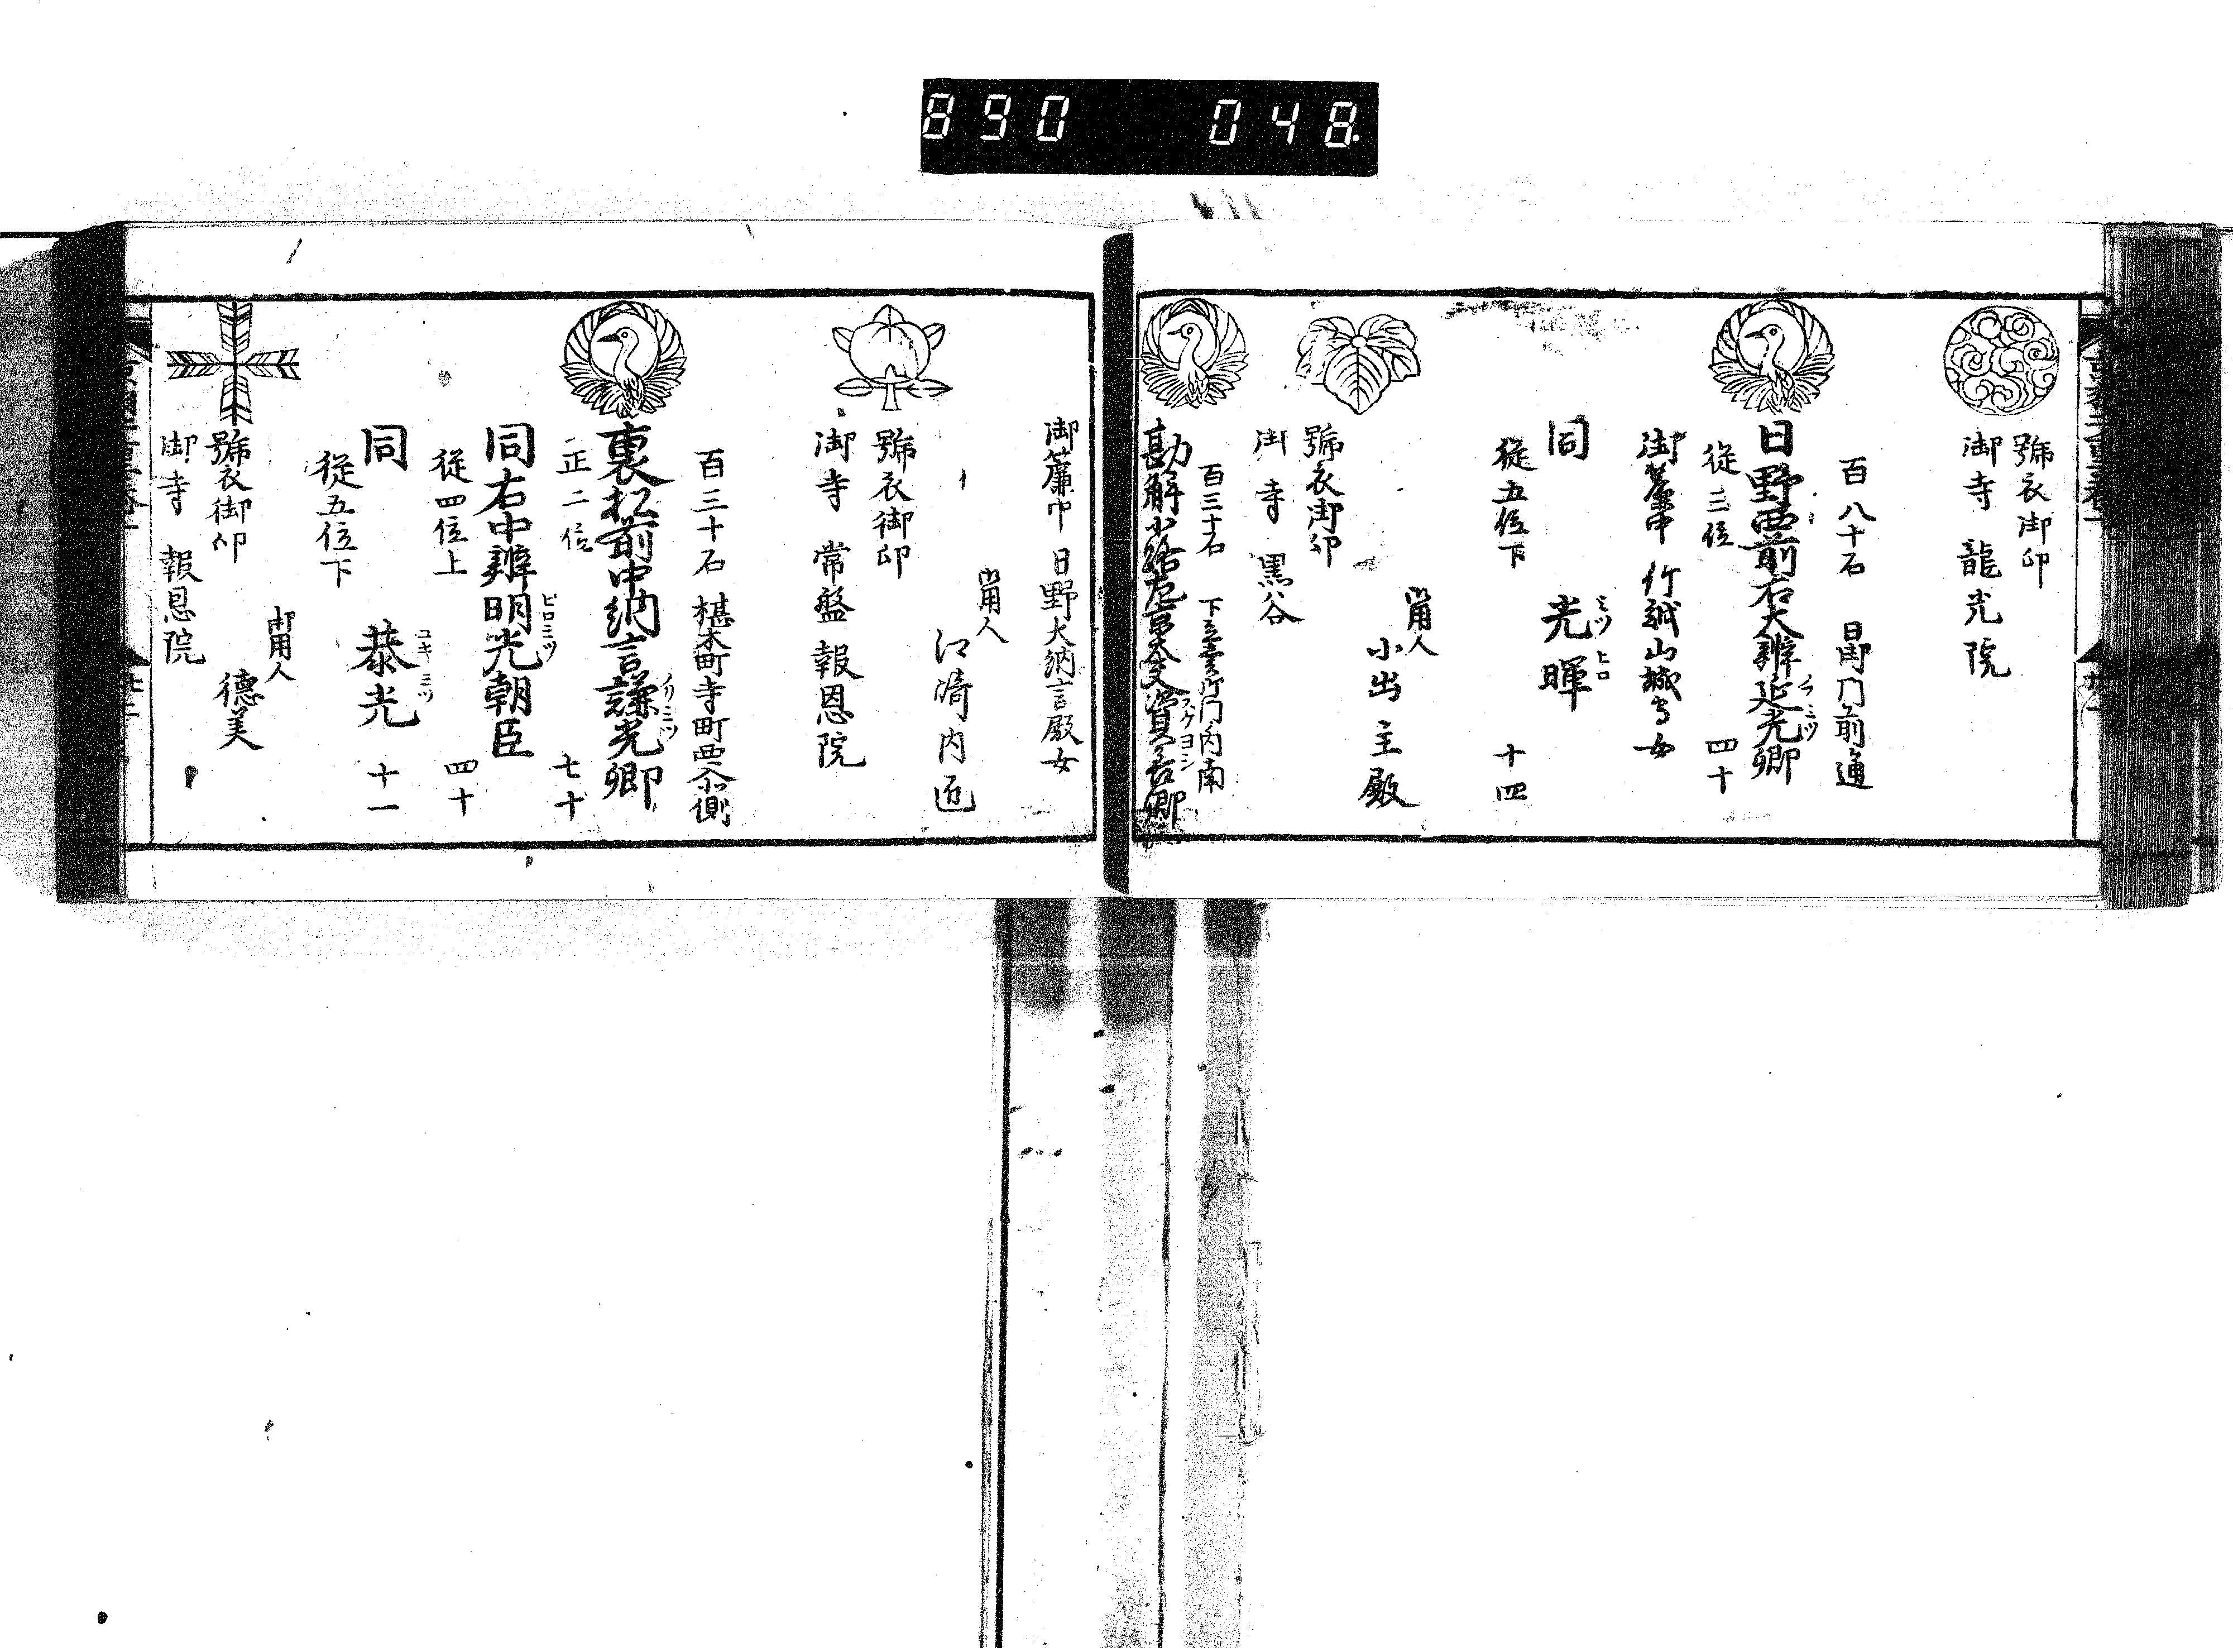 890 048
號衣御印
御寺 龍光院
百八十石 日御門前通
日野西前右大辨延光卿
ノブミツ
從三位 四十
御簾中 竹越山城守女
同 光暉
ミツ ヒロ
從五位下 十四
御用人
小出主殿
號衣御印
御寺 黒谷
百三十石 下立賣御門内南
勘解由小路左京大夫資善卿
スケヨシ
御簾中 日野大納言殿女
御用人
江崎内匠
號衣御印
御寺 常盤 報恩院
百三十石 椹木町寺町西入側
裏松前中納言謙光卿
ノリミツ
正二位 七十
同右中辨明光朝臣
ヒロミツ
從四位上 四十
同 恭光
ユキミツ
從五位下 十一
御用人
德美
號衣御印
御寺 報恩院